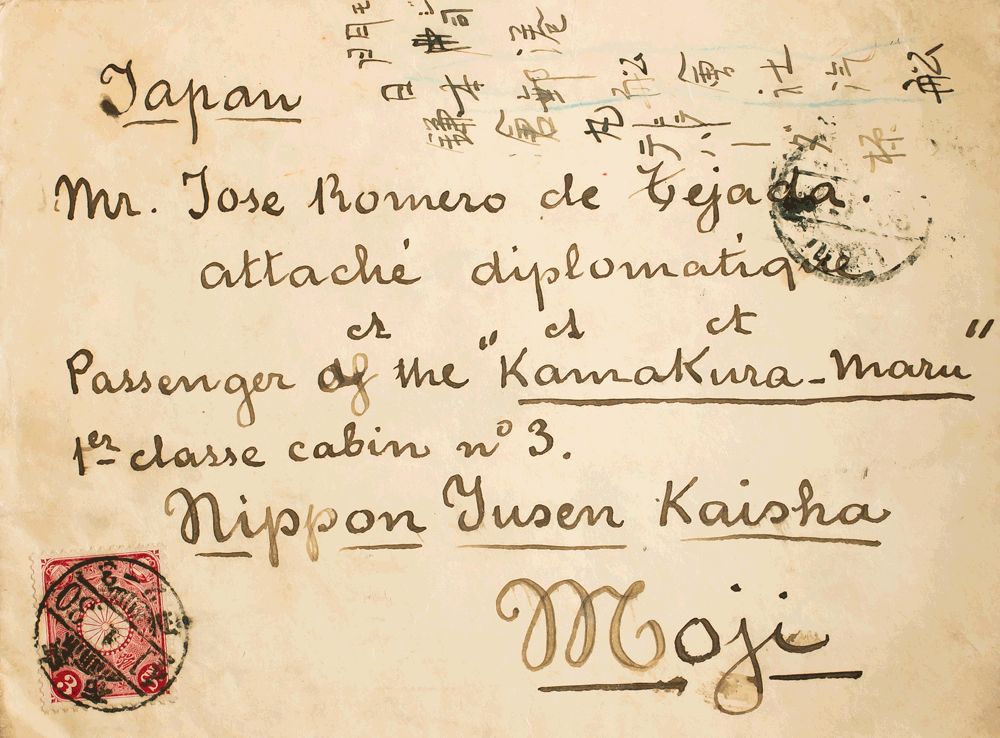 門司港
日本郵船會社汽船
鎌倉丸
Japan
Mr. Jose Romero de Tejada.
attaché diplomatique
ct ct ct
Passenger of the "Kamakura-Maru"
1er classe cabin nº 3.
Nippon Yusen Kaisha
Moji
3